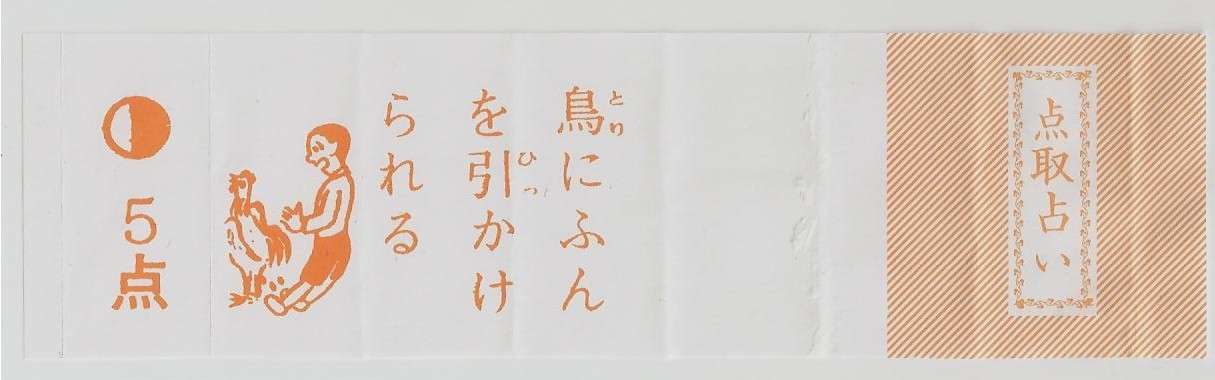 点取占い
鳥にふん
を引かけ
られる
5点